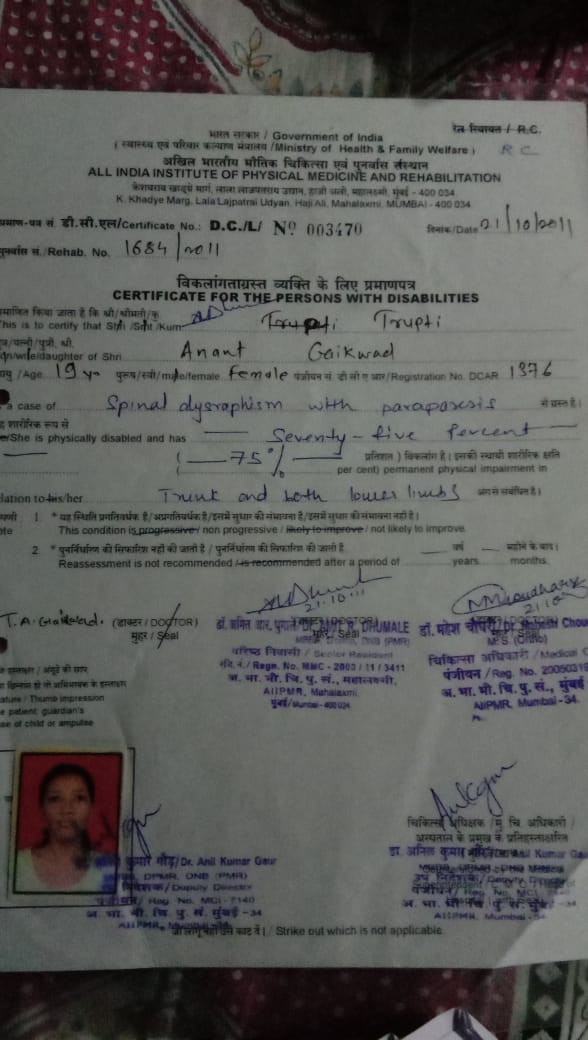 रेल रियायत / R.C.
भारत सरकार / Government of India
R C
( स्वास्थ्य एवं परिवार कल्याण मंत्रालय /Ministry of Health & Family Welfare )
अखिल भारतीय भौतिक चिकित्सा एवं पुनर्वास संस्थान
ALL INDIA INSTITUTE OF PHYSICAL MEDICINE AND REHABILITATION
केशवराव खाड्ये मार्ग, लाला लाजपतराय उद्यान, हाजी अली, महालक्ष्मी, मुंबई - 400 034
K. Khadye Marg, Lala Lajpatrai Udyan, Haji Ali, Mahalaxmi, MUMBAI - 400 034
प्रमाण-पत्र सं. डी.सी.एल/Certificate No.: D.C./L/ Nº 003470 दिनांक/Date 21/10/2011
पुनर्वास सं./Rehab. No. 1684/2011
विकलांगताग्रस्त व्यक्ति के लिए प्रमाणपत्र
CERTIFICATE FOR THE PERSONS WITH DISABILITIES
प्रमाणित किया जाता है कि श्री/श्रीमती/कु.
This is to certify that Shri /Smt /Kum Trupti Trupti
पुत्र/पत्नी/पुत्री, श्री.
son/wife/daughter of Shri Anant Gaikwad
आयु /Age 19 yrs पुरूष/स्त्री/male/female Female पंजीयन सं. डी सी ए आर/Registration No. DCAR 1376
a case of Spinal dysraphism with paraparesis से ग्रस्त है।
शारीरिक रूप से
He/She is physically disabled and has Seventy-five Percent
( 75% प्रतिशत ) विकलांग है। इसकी स्थायी शारीरिक क्षति
per cent) permanent physical impairment in
relation to his/her Trunk and both lower limbs अंग से संबंधित है।
1. * यह स्थिति प्रगतिवर्धक है/अप्रगतिवर्धक है/इसमें सुधार की संभावना है/इसमें सुधार की संभावना नहीं है।
This condition is progressive/ non progressive / likely to improve / not likely to improve.
2. * पुनर्निर्धारण की सिफारिश नहीं की जाती है / पुनर्निर्धारण की सिफारिश की जाती है वर्ष महीने के बाद।
Reassessment is not recommended / is recommended after a period of years months.
21.10.11
T. A. Gaikwad. (डाक्टर / DOCTOR)
मुहर / Seal
(DOCTOR)
मुहर / Seal
DHUMALE
DNB (PMR)
वरिष्ठ निवासी / Senior Resident
Regn. No. MMC - 2003 / 11 / 3411
अ. भा. भौ. चि. पु. सं., महालक्ष्मी,
AIIPMR, Mahalaxmi,
मुंबई/Mumbai - 400 034
डॉ. महेश
M.S. (Ortho)
चिकित्सा अधिकारी / Medical
पंजीयन / Reg. No. 20050319
अ. भा. भौ. चि. पु. सं., मुंबई
AIIPMR, Mumbai -34.
हस्ताक्षर / अंगूठे की छाप
Signature / Thumb impression
patient guardian's
case of child or amputee
Dr. Anil Kumar Gaur
DPMR, DNB (PMR)
Deputy Director
पंजीयन / Reg. No. MCI - 7140
अ. भा. भौ. चि. पु. सं. मुंबई -34
AIIPMR, Mumbai-34
चिकित्सा अधिक्षक /मु. चि अधिकारी /
अस्पताल के प्रमुख के प्रतिहस्ताक्षरित
Anil Kumar Gaur
Deputy Director
पंजीयन / Reg. No. MCI
अ. भा. भौ. चि. पु. सं. मुंबई -34
AIIPMR, Mumbai-34
जो लागू नहीं उसे काट दें। / Strike out which is not applicable.